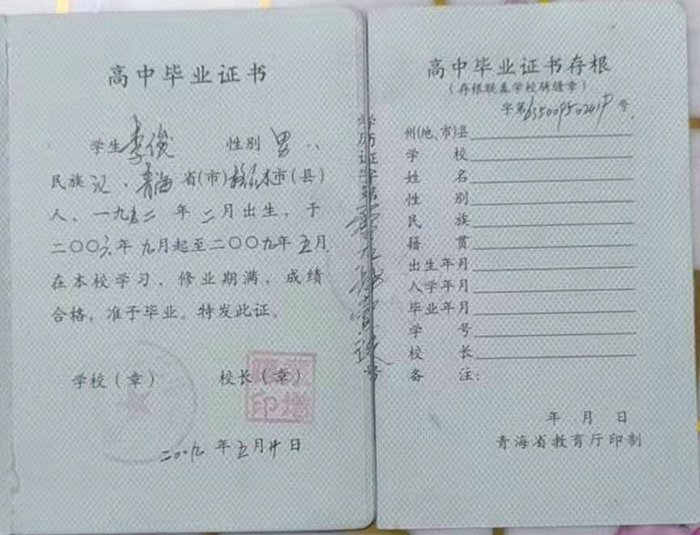 高中毕业证书
学生李俊 性别男
民族汉，青海省(市)格尔木市(县)
人，一九九二年二月出生，于
二〇〇六年九月起至二〇〇九年五月
在本校学习，修业期满，成绩
合格，准于毕业。特发此证。
学校（章） 校长（章）
印增
二〇〇九年五月廿日
学历证字第 号
高中毕业证书存根
（存根联盖学校骑缝章）
字第 号
州(地、市)县
学校
姓名
性别
民族
籍贯
出生年月
入学年月
毕业年月
学号
校长
备注：
年月日
青海省教育厅印制